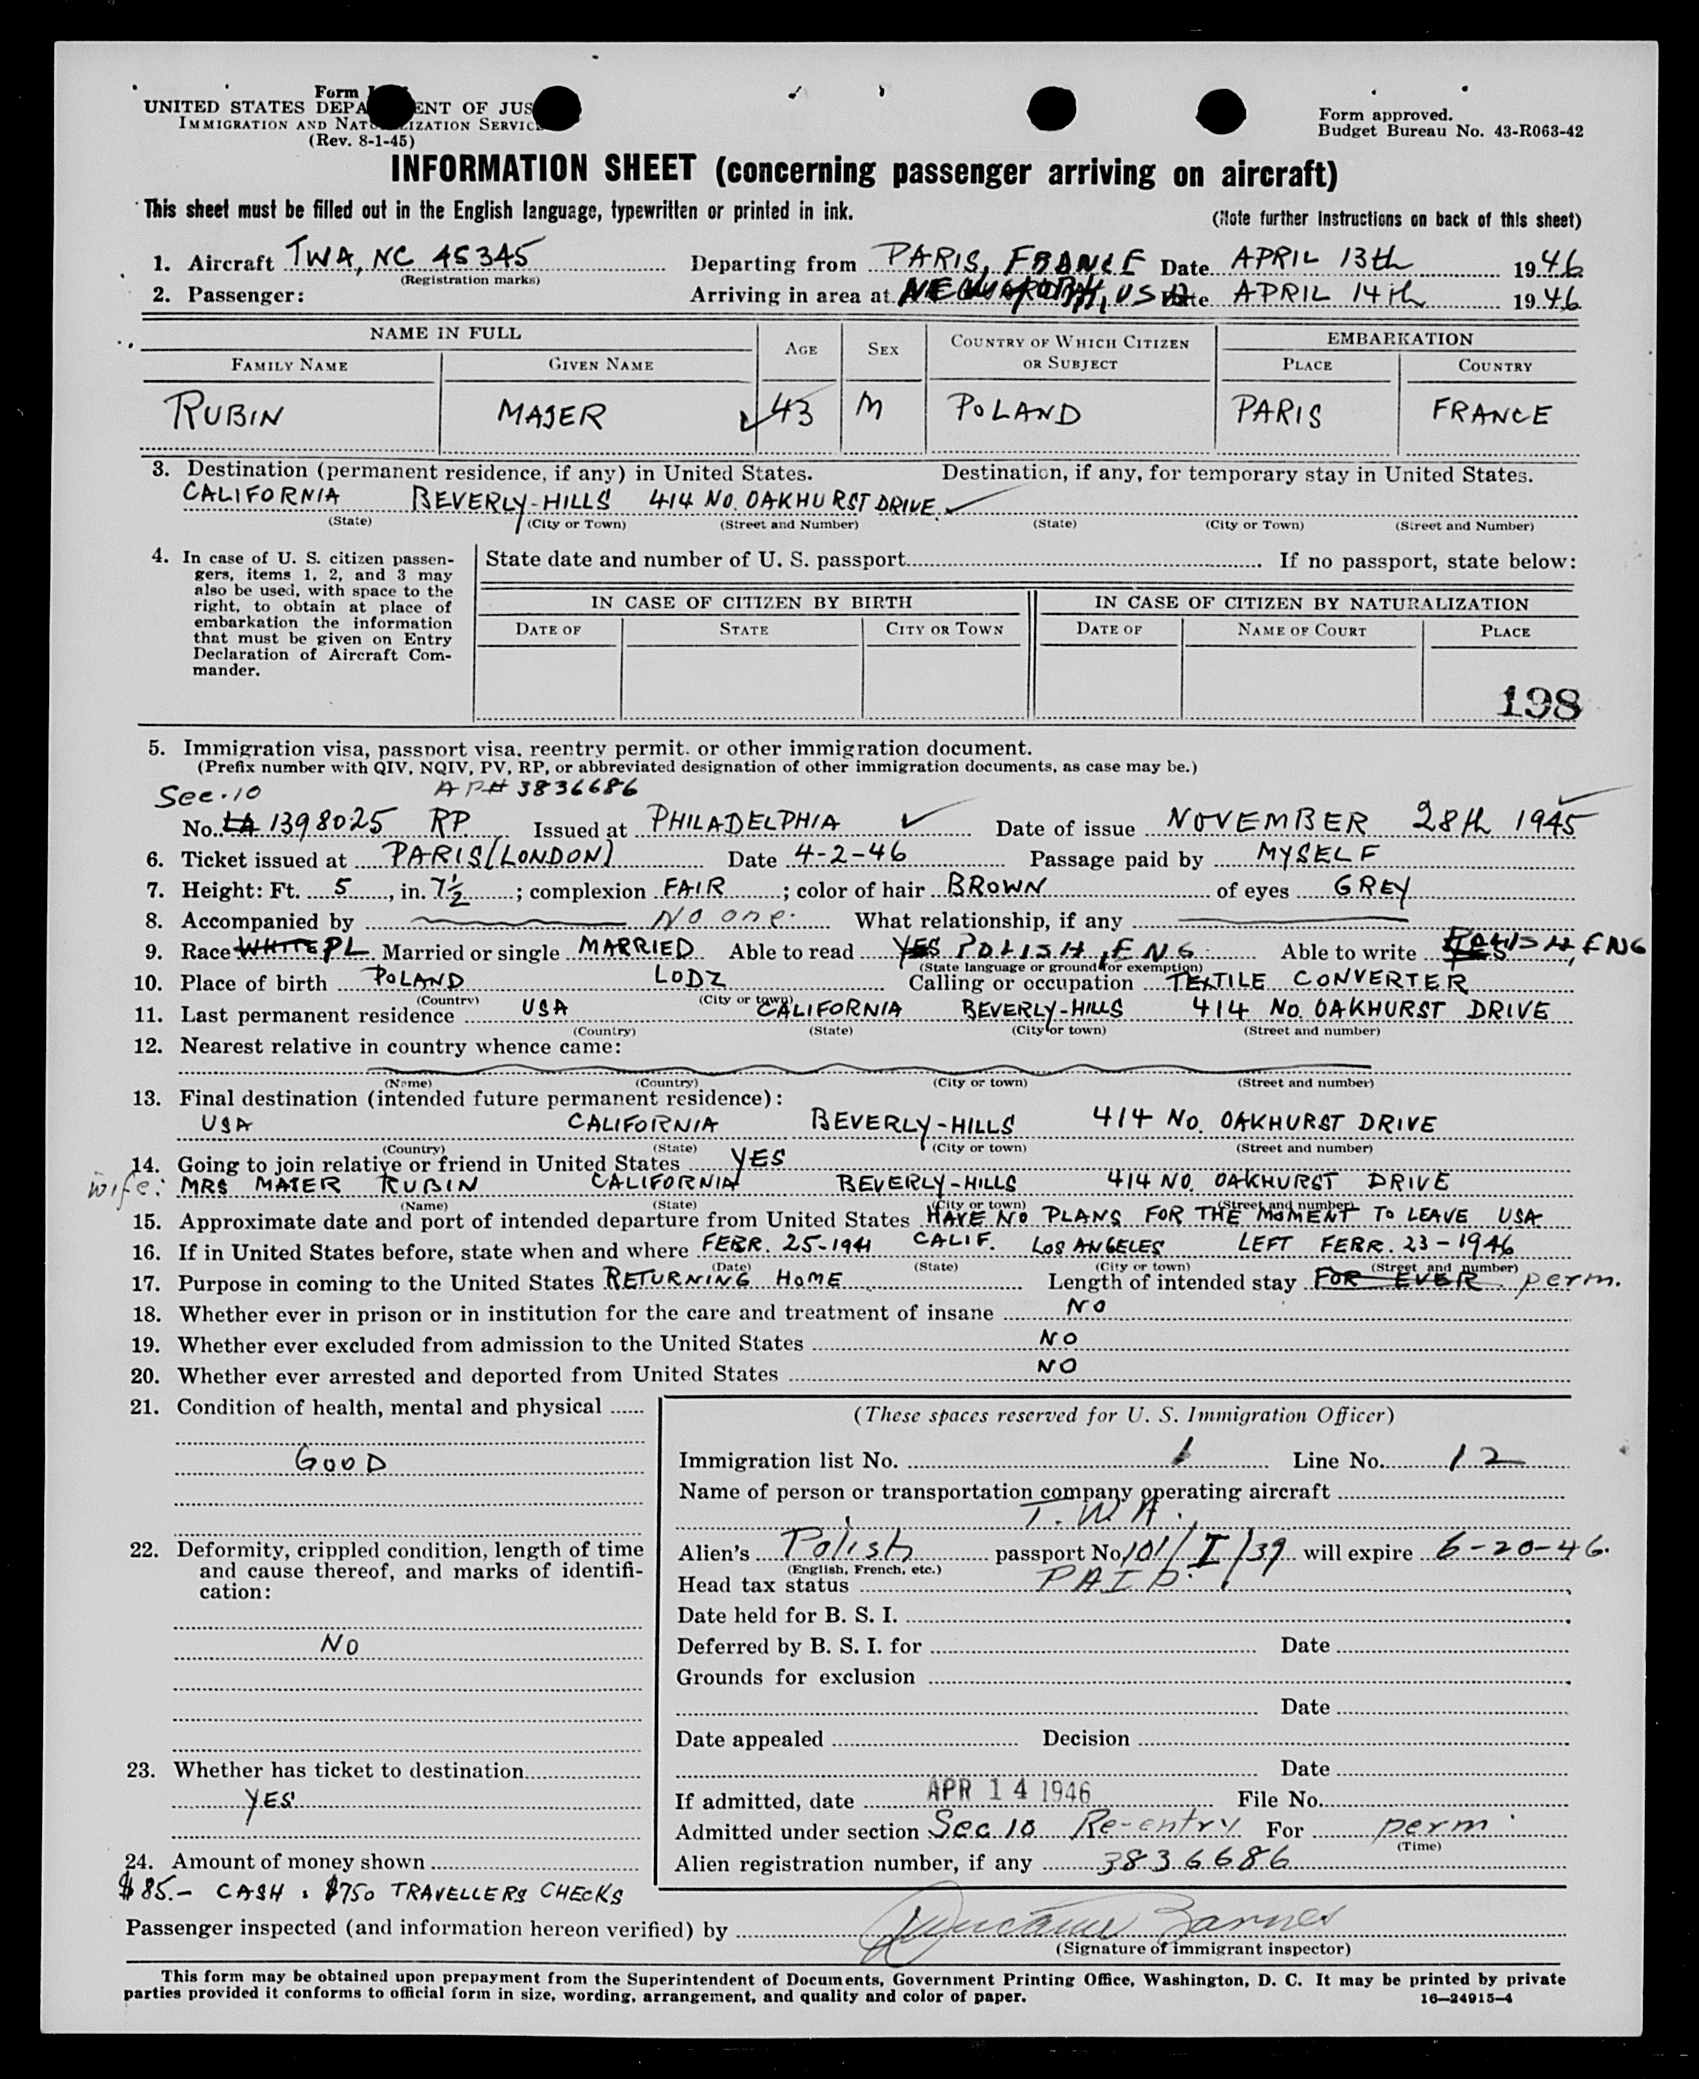 Form
UNITED STATES DEPA ENT OF JUS
IMMIGRATION AND NATU IZATION SERVIC
(Rev. 8-1-45)
Form approved.
Budget Bureau No. 43-R063-42
INFORMATION SHEET (concerning passenger arriving on aircraft)
This sheet must be filled out in the English language, typewritten or printed in ink.
(Note further instructions on back of this sheet)
1. Aircraft TWA, NC 45345 Departing from PARIS, FRANCE Date APRIL 13th 1946
(Registration marks)
2. Passenger: Arriving in area at USA Date APRIL 14th 1946
NAME IN FULL AGE SEX COUNTRY OF WHICH CITIZEN OR SUBJECT EMBARKATION
FAMILY NAME GIVEN NAME PLACE COUNTRY
RUBIN MAJER 43 M POLAND PARIS FRANCE
3. Destination (permanent residence, if any) in United States. Destination, if any, for temporary stay in United States.
CALIFORNIA BEVERLY-HILLS 414 NO. OAKHURST DRIVE.
(State) (City or Town) (Street and Number) (State) (City or Town) (Street and Number)
4. In case of U. S. citizen passen-
gers, items 1, 2, and 3 may
also be used, with space to the
right, to obtain at place of
embarkation the information
that must be given on Entry
Declaration of Aircraft Com-
mander.
State date and number of U. S. passport If no passport, state below:
IN CASE OF CITIZEN BY BIRTH IN CASE OF CITIZEN BY NATURALIZATION
DATE OF STATE CITY OR TOWN DATE OF NAME OF COURT PLACE
198
5. Immigration visa, passport visa, reentry permit, or other immigration document.
(Prefix number with QIV, NQIV, PV, RP, or abbreviated designation of other immigration documents, as case may be.)
Sec. 10 AP# 3836686
No. LA 1398025 RP. Issued at PHILADELPHIA Date of issue NOVEMBER 28th 1945
6. Ticket issued at PARIS (LONDON) Date 4-2-46 Passage paid by MYSELF
7. Height: Ft. 5, in. 7½; complexion FAIR; color of hair BROWN of eyes GREY
8. Accompanied by No one. What relationship, if any
9. Race WHITE PL. Married or single MARRIED Able to read YES POLISH, ENG Able to write POLISH, ENG
(State language or ground for exemption)
10. Place of birth POLAND LODZ Calling or occupation TEXTILE CONVERTER
(Country) (City or town)
11. Last permanent residence USA CALIFORNIA BEVERLY-HILLS 414 NO. OAKHURST DRIVE
(Country) (State) (City or town) (Street and number)
12. Nearest relative in country whence came:
(Name) (Country) (City or town) (Street and number)
13. Final destination (intended future permanent residence):
USA CALIFORNIA BEVERLY-HILLS 414 NO. OAKHURST DRIVE
(Country) (State) (City or town) (Street and number)
14. Going to join relative or friend in United States YES
wife: MRS MAJER RUBIN CALIFORNIA BEVERLY-HILLS 414 NO. OAKHURST DRIVE
(Name) (State) (City or town) (Street and number)
15. Approximate date and port of intended departure from United States HAVE NO PLANS FOR THE MOMENT TO LEAVE USA
16. If in United States before, state when and where FEBR. 25-1941 CALIF. LOS ANGELES LEFT FEBR. 23-1946
(Date) (State) (City or town) (Street and number)
17. Purpose in coming to the United States RETURNING HOME Length of intended stay FOR EVER perm.
18. Whether ever in prison or in institution for the care and treatment of insane NO
19. Whether ever excluded from admission to the United States NO
20. Whether ever arrested and deported from United States NO
21. Condition of health, mental and physical
GOOD
22. Deformity, crippled condition, length of time
and cause thereof, and marks of identifi-
cation:
NO
23. Whether has ticket to destination
YES
24. Amount of money shown
$85.- CASH; $750 TRAVELLERS CHECKS
(These spaces reserved for U. S. Immigration Officer)
Immigration list No. 1 Line No. 12
Name of person or transportation company operating aircraft
T.W.A.
Alien's Polish passport No. 101/I/39 will expire 6-20-46.
(English, French, etc.)
Head tax status PAID.
Date held for B. S. I.
Deferred by B. S. I. for Date
Grounds for exclusion
Date
Date appealed Decision
Date
If admitted, date APR 14 1946 File No.
Admitted under section Sec 10 Re-entry For perm
(Time)
Alien registration number, if any 3836686
Passenger inspected (and information hereon verified) by Barnes
(Signature of immigrant inspector)
This form may be obtained upon prepayment from the Superintendent of Documents, Government Printing Office, Washington, D. C. It may be printed by private
parties provided it conforms to official form in size, wording, arrangement, and quality and color of paper.
16—24915-4